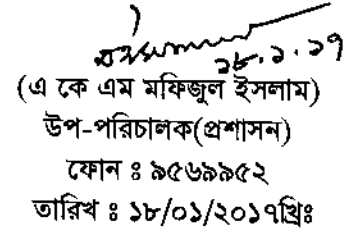 ১৮.১.১৭
(এ কে এম মফিজুল ইসলাম)
উপ-পরিচালক(প্রশাসন)
ফোন ঃ ৯৫৬৯৯৫২
তারিখ ঃ ১৮/০১/২০১৭খ্রিঃ